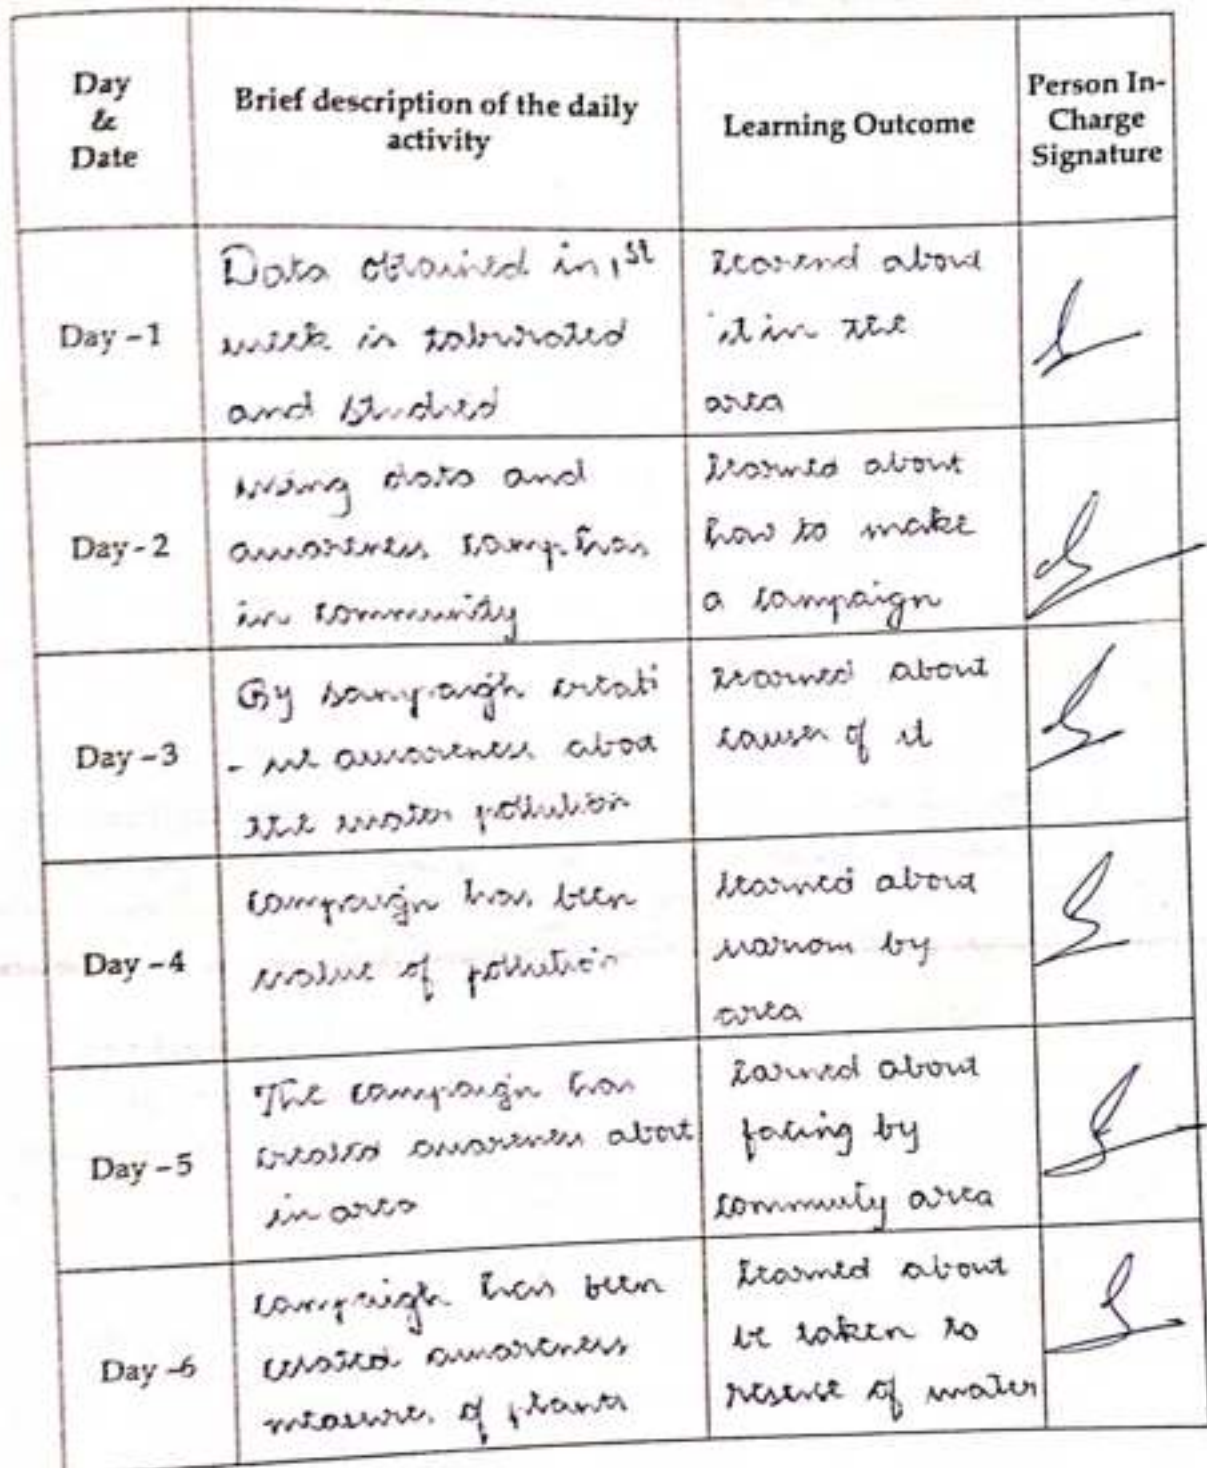 Day
&
Date
Brief description of the daily
activity
Learning Outcome
Person In-
Charge
Signature
Day - 1
Data obtained in 1st
week is taburated
and studied
Learend about
it in the
area
Day - 2
using data and
awareness camp has
in community
Learned about
how to make
a campaign
Day - 3
By campaigh creati
- awareness about
the water pollution
Learned about
causes of it
Day - 4
campaign has been
value of pollution
Learned about
by
area
Day - 5
The campaign has
created awareness about
in area
Larned about
facing by
commuty area
Day - 6
campaigh has been
created awareness
measures of plants
Learned about
be taken to
reserse of water